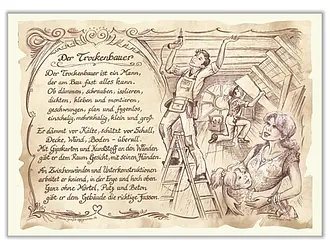 Der Trockenbauer
Der Trockenbauer ist ein Mann,
der am Bau fast alles kann.
Ob dämmen, schrauben, isolieren,
dichten, kleben und montieren,
geschwungen, plan und fugenlos,
einschalig, mehrschalig, klein und groß.
Er dämmt vor Kälte, schützt vor Schall,
Decke, Wand, Boden - überall.
Mit Gipskarton und Kunststoff an den Wänden
gibt er dem Raum Gesicht, mit seinen Händen.
An Zwischenwänden und Unterkonstruktionen
arbeitet er kniend, in der Enge und hoch oben.
Ganz ohne Mörtel, Putz und Beton
gibt er dem Gebäude die richtige Fasson.